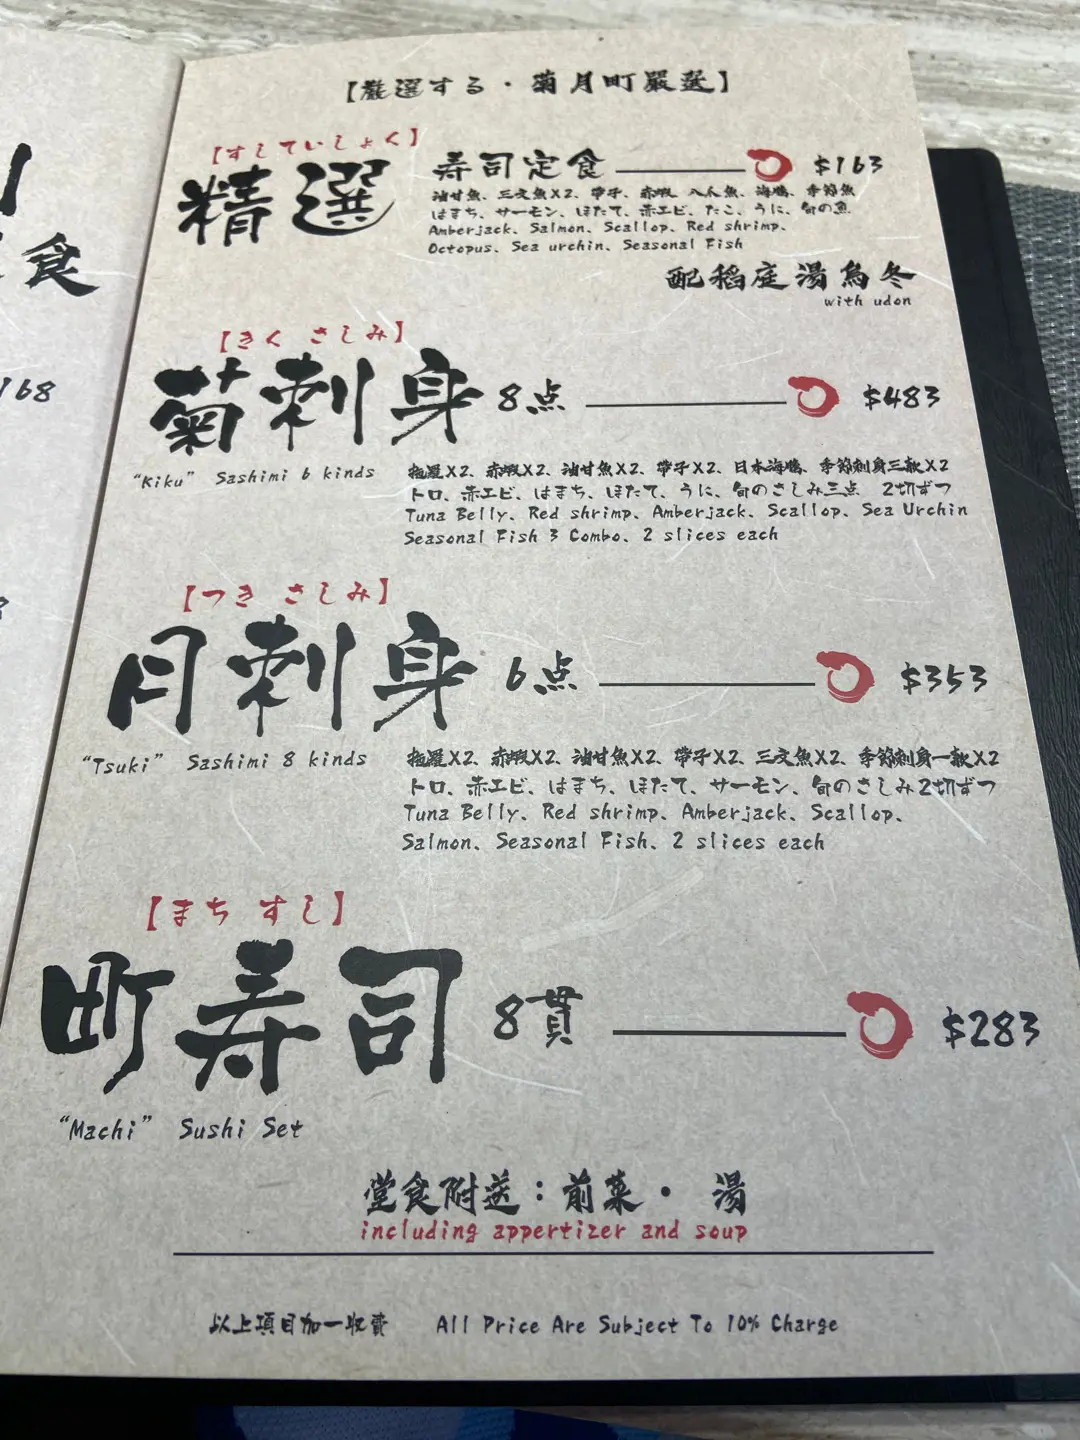 【厳選する・菊月町嚴選】
【すしていしょく】
精選 寿司定食 $163
油甘魚、三文魚X2、帶子、赤蝦、八爪魚、海膽、季節魚
はまち、サーモン、ほたて、赤エビ、たこ、うに、旬の魚
Amberjack、Salmon、Scallop、Red shrimp、
Octopus、Sea urchin、Seasonal Fish
配稻庭湯烏冬
with udon
【きく さしみ】
菊刺身 8点 $483
"Kiku" Sashimi 6 kinds
拖羅X2、赤蝦X2、油甘魚X2、帶子X2、日本海膽、季節刺身三款X2
トロ、赤エビ、はまち、ほたて、うに、旬のさしみ三点 2切ずつ
Tuna Belly、Red shrimp、Amberjack、Scallop、Sea Urchin
Seasonal Fish 3 Combo、2 slices each
【つき さしみ】
月刺身 6点 $353
"Tsuki" Sashimi 8 kinds
拖羅X2、赤蝦X2、油甘魚X2、帶子X2、三文魚X2、季節刺身一款X2
トロ、赤エビ、はまち、ほたて、サーモン、旬のさしみ2切ずつ
Tuna Belly、Red shrimp、Amberjack、Scallop、
Salmon、Seasonal Fish、2 slices each
【まち すし】
町寿司 8貫 $283
"Machi" Sushi Set
堂食附送：前菜・ 湯
including appertizer and soup
以上項目加一收費 All Price Are Subject To 10% Charge
食
168